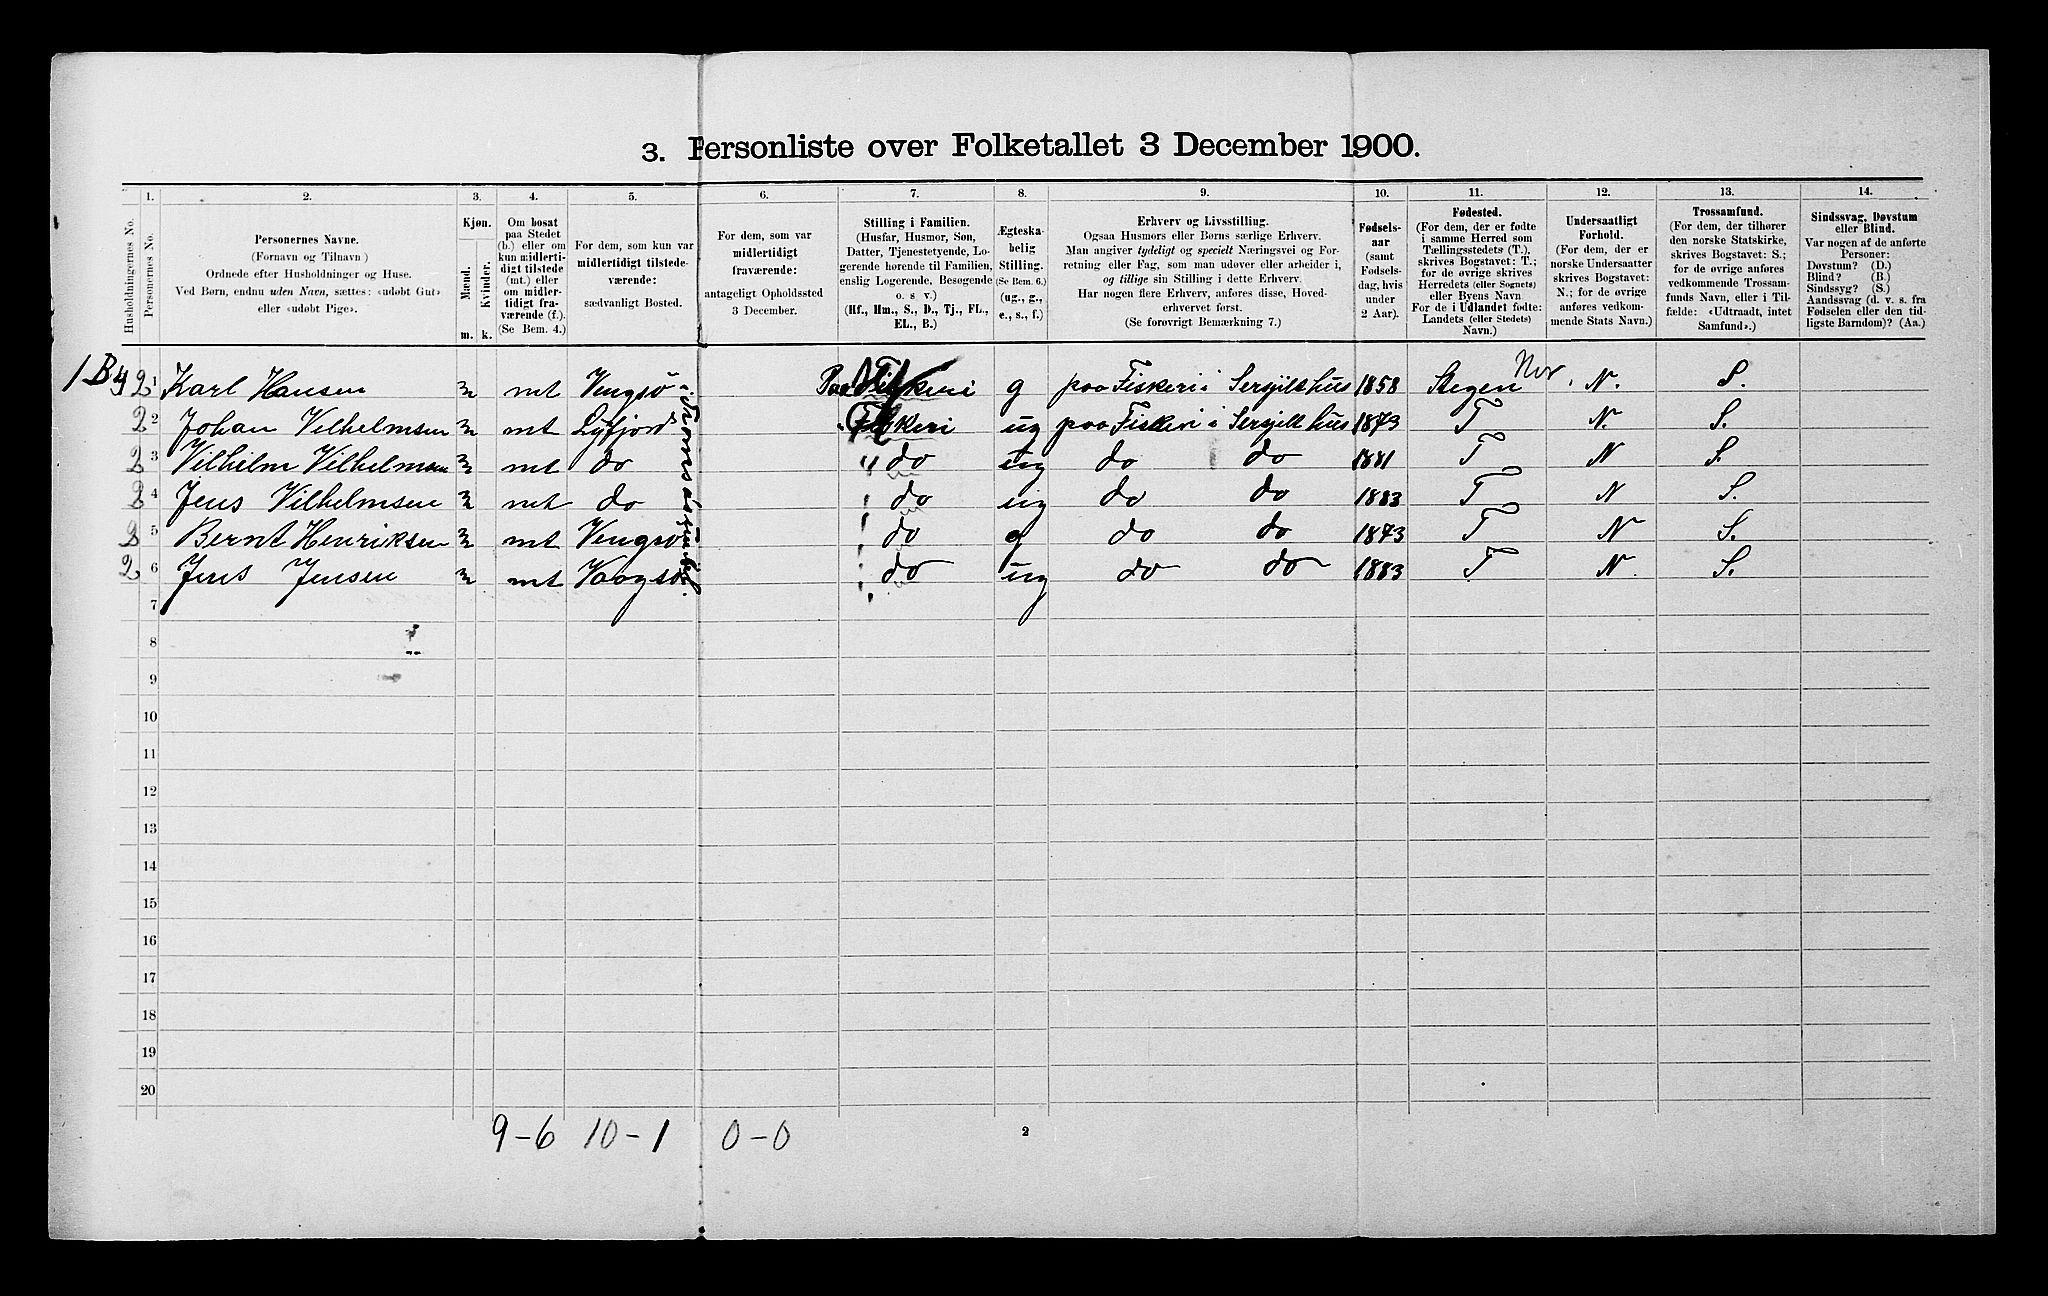 3. Personliste over Folketallet 3 December 1900.
Husholdningernes No.
1.
Personernes No.
2.
Personernes Navne.
(Fornavn og Tilnavn)
Ordnede efter Husholdninger og Huse.
Ved Børn, endnu uden Navn, sættes: «udøbt Gut»
eller «udøbt Pige».
3.
Kjøn.
Mænd.
Kvinder.
m. k.
4.
Om bosat
paa Stedet
(b.) eller om
kun midlerti-
digt tilstede
(mt.) eller
om midler-
tidigt fra-
værende (f.).
(Se Bem. 4.)
5.
For dem, som kun var
midlertidigt tilstede-
værende:
sædvanligt Bosted.
6.
For dem, som var
midlertidigt
fraværende:
antageligt Opholdssted
3 December.
7.
Stilling i Familien.
(Husfar, Husmor, Søn,
Datter, Tjenestetyende, Lo-
gerende hørende til Familien,
enslig Logerende, Besøgende
o. s v.)
(Hf., Hm., S., D., Tj., FL.,
EL., B.)
8.
Ægteska-
belig
Stilling.
(Se Bem. 6.)
(ug., g.,
e., s., f.)
9.
Erhverv og Livsstilling.
Ogsaa Husmors eller Børns særlige Erhverv.
Man angiver tydeligt og specielt Næringsvei og For-
retning eller Fag, som man udøver eller arbeider i,
og tillige sin Stilling i dette Erhverv.
Har nogen flere Erhverv, anføres disse, Hoved-
erhvervet først.
(Se forøvrigt Bemærkning 7.)
10.
Fødsels-
aar
(samt
Fødsels-
dag, hvis
under
2 Aar).
11.
Fødested.
(For dem, der er fødte
i samme Herred som
Tællingsstedets (T.),
skrives Bogstavet: T.;
for de øvrige skrives
Herredets (eller Sognets)
eller Byens Navn
For de i Udlandet fødte:
Landets (eller Stedets)
Navn.)
12.
Undersaatligt
Forhold.
(For dem, der er
norske Undersaatter
skrives Bogstavet:
N.; for de øvrige
anføres vedkom-
mende Stats Navn.)
13.
Trossamfund.
(For dem, der tilhører
den norske Statskirke,
skrives Bogstavet: S.;
for de øvrige anføres
vedkommende Trossam-
funds Navn, eller i Til-
fælde: «Udtraadt, intet
Samfund».)
14.
Sindssvag, Døvstum
eller Blind.
Var nogen af de anførte
Personer:
Døvstum? (D.)
Blind? (B.)
Sindssyg? (S.)
Aandssvag (d. v. s. fra
Fødselen eller den tid-
ligste Barndom)? (Aa.)
2 1 Karl Hansen m mt Vengsø Paa Fiskeri g paa Fiskeri i Sersjilthus 1858 Stegen Nor. N. S.
2 2 Johan Vilhelmsen m mt Lyfjord Fiskeri ug paa Fiskeri i Sersjilthus 1873 T N. S.
2 3 Vilhelm Vilhelmsen m mt do " do ug do do 1881 T N S.
2 4 Jens Vilhelmsen m mt do do ug do do 1883 T N S.
2 5 Bernt Henriksen m mt Vengsø do g do do 1873 T N S.
2 6 Jens Jensen m mt Vaagsø do ug do do 1883 T N. S.
7
8
9
10
11
12
13
14
15
16
17
18
19
20
9-6 10-1 0-0
2